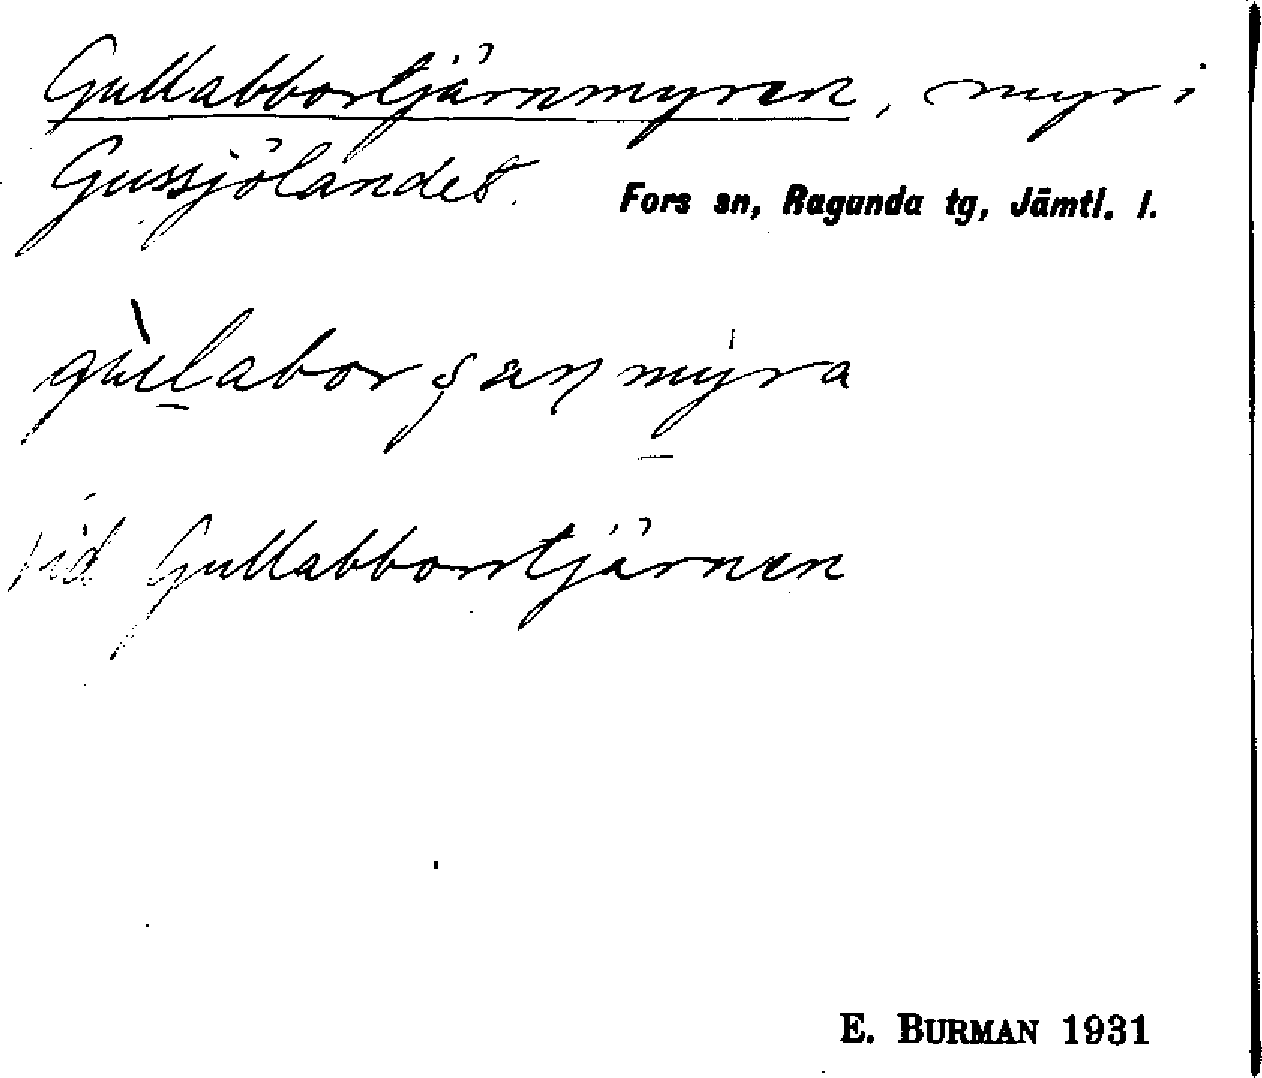 Gullabbortjärnmyren, myr i
Gussjölandet. Fors sn, Ragunda tg, Jämtl. l.
vid Gullabborrtjärnen
E. BURMAN 1931